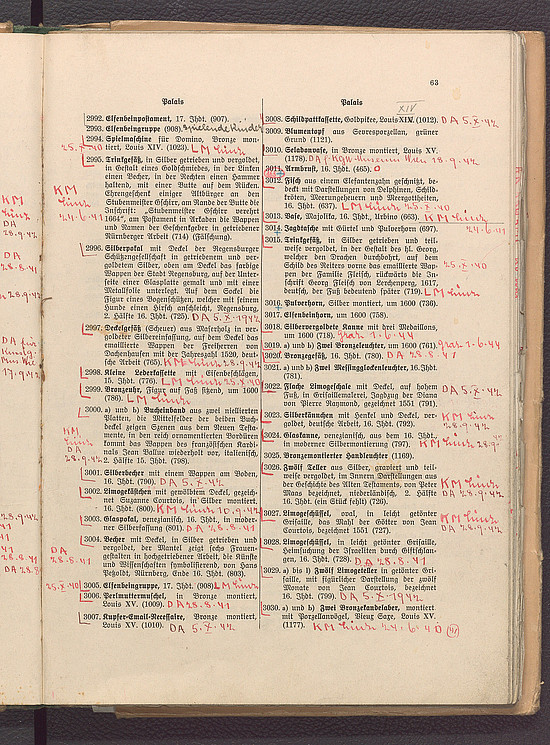 63
Palais
2992. Elfenbeinpostament, 17. Jhdt. (907).
2993. Elfenbeingruppe (908). Spielende Kinder
2994. Spielmaschine für Domino, Bronze mon-
25.X.40 tiert, Louis XIV. (1023). LM Linz
2995. Trinkgefäß, in Silber getrieben und vergoldet,
in Gestalt eines Goldschmiedes, in der Linken
einen Becher, in der Rechten einen Hammer
haltend, mit einer Butte auf dem Rücken.
KM Linz 24.6.41
Ehrengeschenk einiger Wildbürger an den
Stubenmeister Gschirr, am Rande der Butte die
Inschrift: „Stubenmeister Gschirr verehrt
1664“, am Postament in Arkaden die Wappen
und Namen der Geschenkgeber in getriebener
Nürnberger Arbeit (714) (Fälschung).
2996. Silberpokal mit Deckel der Regensburger
Schützengesellschaft in getriebenem und ver-
goldetem Silber, oben am Deckel das farbige
Wappen der Stadt Regensburg, auf der Unter-
seite einer Glasplatte gemalt und mit einer
Metallfolie unterlegt. Auf dem Sockel die
Figur eines Bogenschützen, welcher mit seinem
Hunde einen Hirsch anschleicht, Regensburg,
2. Hälfte 16. Jhdt. (725). DA 5.X.1942
2997. Deckelgefäß (Scheuer) aus Maserholz in ver-
goldeter Silbereinfassung, auf dem Deckel das
emaillierte Wappen der Freiherren von
Dachenhausen mit der Jahreszahl 1520, deut-
sche Arbeit (765). KM Linz 28.9.42
2998. Kleine Lederkassette mit Eisenbeschlägen,
15. Jhdt. (776). LM Linz 25.X.40
2999. Bronzeuhr, Figur auf Faß sitzend, um 1600
(786). LM Linz
3000. a) und b) Bucheinband aus zwei niellierten
Platten, die Mittelfelder der beiden Buch-
deckel zeigen Szenen aus dem Neuen Testa-
KM Linz DA 28.9.42
mente, in den reich ornamentierten Bordüren
kommt das Wappen des französischen Kardi-
nals Jean Vallue wiederholt vor, italienisch,
2. Hälfte 15. Jhdt. (798).
3001. Silberbecher mit einem Wappen am Boden,
16. Jhdt. (790). DA 5.X.42
3002. Limogekästchen mit gewölbtem Deckel, gezeich-
net Suzanne Courtois, in Silber montiert,
16. Jhdt. (800). KM Linz 10.9.42
3003. Glaspokal, venezianisch, 16. Jhdt., in moder-
ner Silberfassung (801). DA 28.8.41
3004. Becher mit Deckel, in Silber getrieben und
vergoldet, der Mantel zeigt sechs Frauen-
DA 28.8.41
gestalten in hochgetriebener Arbeit, die Künste
und Wissenschaften symbolisierend, von Hans
Petzoldt, Nürnberg, Ende 16. Jhdt. (803).
25.X.40 3005. Elfenbeingruppe, 17. Jhdt. (908) LM Linz
3006. Perlmuttermuschel, in Bronze montiert,
Louis XV. (1009). DA 28.8.41
3007. Kupfer-Email-Necessaire, Bronze montiert,
Louis XV. (1010). DA 5.X.42
Palais
XIV
3008. Schildpattkassette, Goldpikee, Louis XIV. (1012). DA 5.X.42
3009. Blumentopf aus Sevresporzellan, grüner
Grund (1121).
3010. Seladonvase, in Bronze montiert, Louis XV.
(1178). DA f. Kgw. Museum Wien 18.9.42
3011. Armbrust, 16. Jhdt. (465). O
3012. Fisch aus einem Elefantenzahn geschnitzt, be-
deckt mit Darstellungen von Delphinen, Schild-
kröten, Meerungeheuern und Meergottheiten,
16. Jhdt. (637).
3013. Vase, Majolika, 16. Jhdt., Urbino (663). KM Linz
3014. Jagdtasche mit Gürtel und Pulverhorn (697). 24.6.41
3015. Trinkgefäß, in Silber getrieben und teil-
weise vergoldet, in der Gestalt des hl. Georg,
welcher den Drachen durchbohrt, auf dem
Schild des Reiters vorne das emaillierte Wap-
25.X.40
pen der Familie Fleisch, rückwärts die In-
schrift Georg Fleisch von Lerchenperg, 1617,
deutsch, der Fuß bedeutend später (719). LM Linz
3016. Pulverhorn, Silber montiert, um 1600 (736).
3017. Elfenbeinhorn, um 1600 (758).
3018. Silbervergoldete Kanne mit drei Medaillons,
um 1600 (718). Graz 1.6.44
3019. a) und b) Zwei Bronzeleuchter, um 1600 (761). Graz 1.6.44
3020. Bronzegefäß, 16. Jhdt. (780). DA 28.8.41
3021. a) und b) Zwei Messingglockenleuchter, 16. Jhdt.
(781).
3022. Flache Limogeschale mit Deckel, auf hohem
Fuß, in Grisaillemalerei, Jagdzug der Diana
von Pierre Raymond, gezeichnet 1551 (791).
DA 5.X.42
3023. Silberkännchen mit Henkel und Deckel, ver-
goldet, deutsche Arbeit, 16. Jhdt. (792).
KM Linz DA 28.9.42
3024. Glaskanne, venezianisch, aus dem 16. Jhdt.,
in moderner Silbermontierung (797). KM Linz 28.9.42
3025. Bronzemontierter Handleuchter (1169).
3026. Zwölf Teller aus Silber, graviert und teil-
weise vergoldet, im Innern Darstellungen aus
der Geschichte des Alten Testaments, von Peter
Maas bezeichnet, niederländisch, 2. Hälfte
16. Jhdt. (ein Stück fehlt) (726).
KM Linz DA 28.9.42
3027. Limogeschüssel, oval, in leicht getönter
Grisaille, das Mahl der Götter von Jean
Courtois, bezeichnet 1551 (727).
KM Linz DA 28.9.42
3028. Limogeschüssel, in leicht getönter Grisaille,
Heimsuchung der Israeliten durch Giftschlan-
gen, 16. Jhdt. (728). DA 28.8.41
3029. a) bis l) Zwölf Limogeteller in getönter Gri-
saille, mit figürlicher Darstellung der zwölf
Monate von Jean Courtois, bezeichnet
16. Jhdt. (799). DA 5.X.1942
3030. a) und b) Zwei Bronzekandelaber, montiert
mit Porzellanvögel, Vieux Saxe, Louis XV.
(1177). KM Linz 24.6.40 (41)